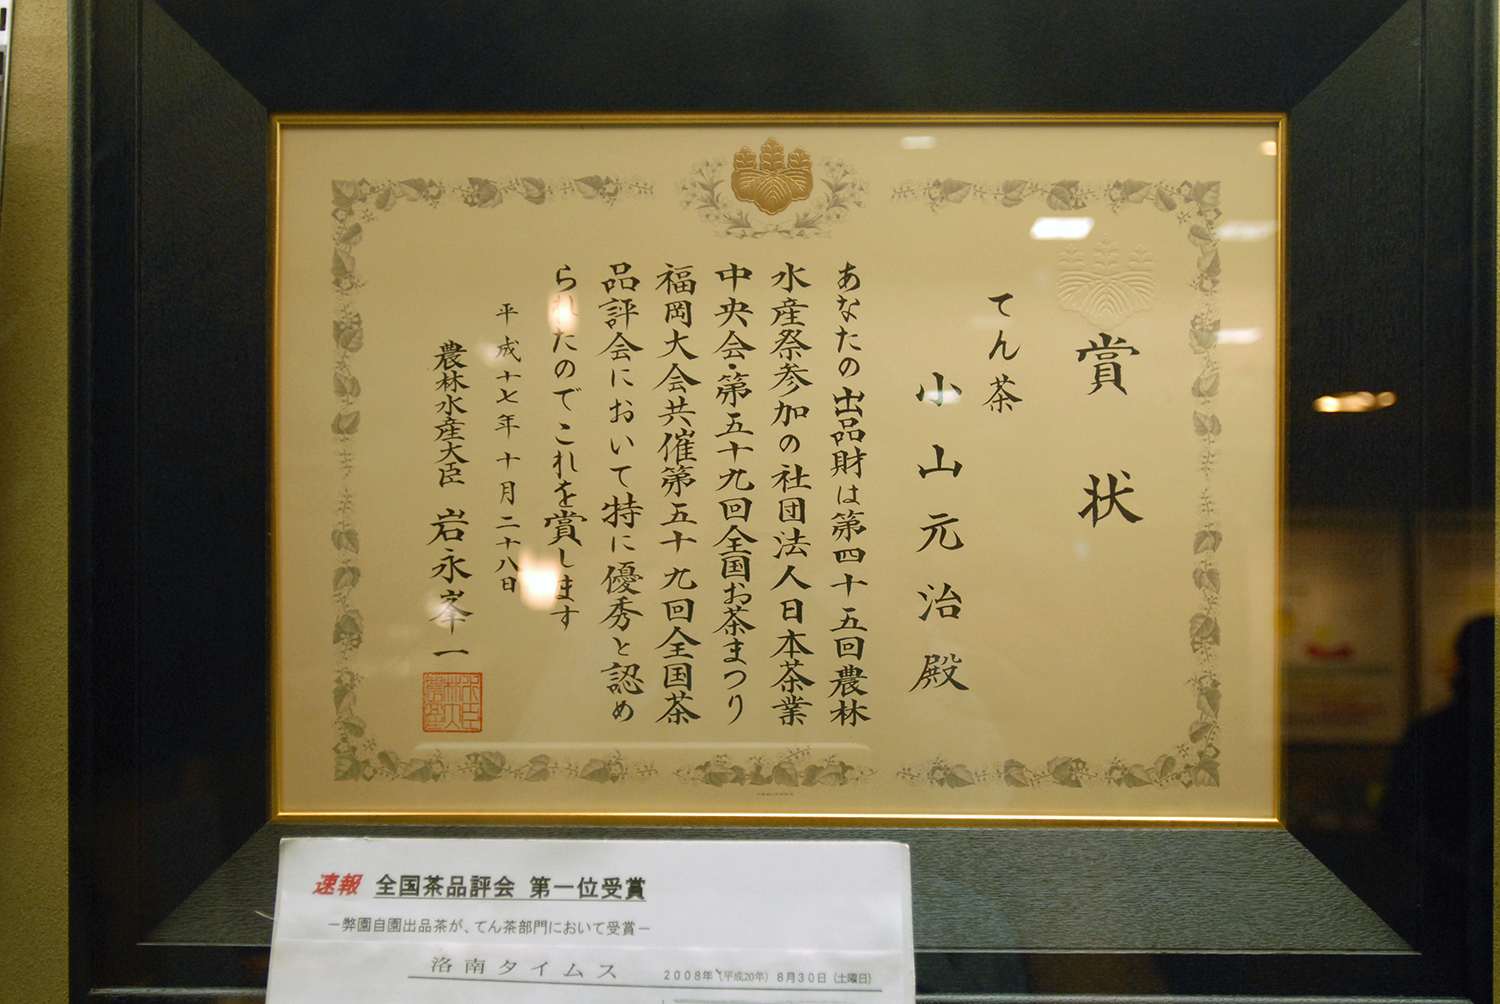 賞状
てん茶
小山元治殿
あなたの出品財は第四十五回農林
水産祭参加の社団法人日本茶業
中央会・第五十九回全国お茶まつり
福岡大会共催第五十九回全国茶
品評会において特に優秀と認め
られたのでこれを賞します
平成十七年十月二十八日
農林水産大臣 岩永峯一
速報 全国茶品評会 第一位受賞
－弊園自園出品茶が、てん茶部門において受賞－
洛南タイムス 2008年(平成20年)8月30日(土曜日)